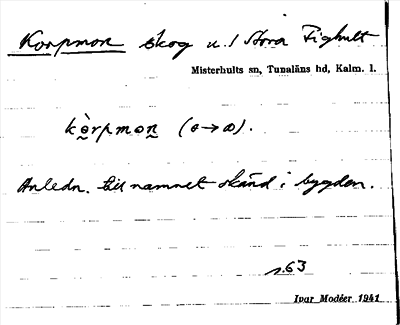 Korpmon skog u. / Stora Fighult
Misterhults sn, Tunaläns hd, Kalm. l.
kòrpmon (o→ω).
Anledn. till namnet okänd i bygden.
s. 63
Ivar Modéer 1941